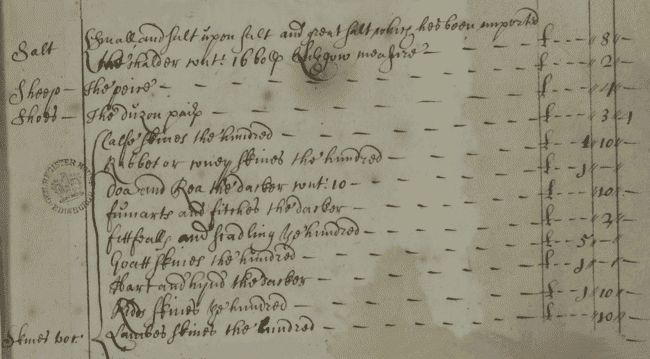 Salt Small and salt upon salt and great salt which hes been imported £ - - - " 8 "
The chalder cont: 16 boll Glasgow measure - £ - - - " 2 "
Sheep - The peice - - £ - - - " 4 "
Shoes - The duzon pair - £ - - - " 3 " 1
Calfe skines the hundred - £ - - - 1 10 "
Rabbet or coney skines the hundred - £ - - - 1 " "
Doa and Rea the dacker cont: 10 - £ - - - " 10 "
fumarts and fitches the dacker - £ - - - " 2 "
futtfalls and scadling ye hundred - £ - - - 5 "
Goatt skines the hundred - £ - - - 1 " "
Hart and hynd the dacker - £ - - - 1 10 "
Kidd skines ye hundred - £ - - - " 10 "
Skines voc: Lambes skines the hundred -